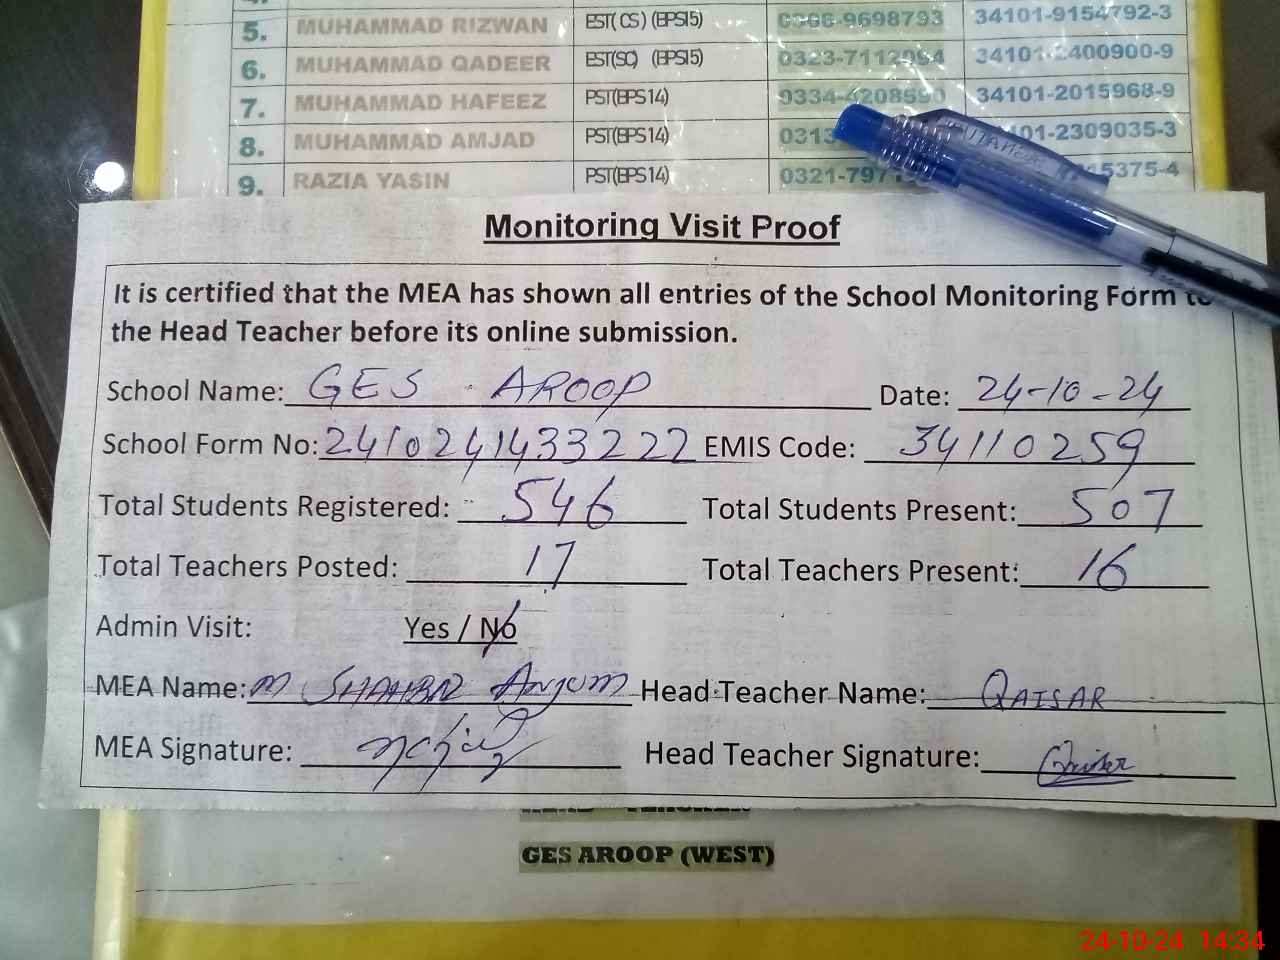 5. MUHAMMAD RIZWAN EST(CS) (BPS15) 0306-9698793 34101-9154792-3
6. MUHAMMAD QADEER EST(SC) (BPS15) 0323-7112094 34101-2400900-9
7. MUHAMMAD HAFEEZ PST(BPS14) 0334-4208590 34101-2015968-9
8. MUHAMMAD AMJAD PST(BPS14) 0313 01-2309035-3
9. RAZIA YASIN PST(BPS14) 0321-797 15375-4
Monitoring Visit Proof
It is certified that the MEA has shown all entries of the School Monitoring Form to
the Head Teacher before its online submission.
School Name: GES AROOP Date: 24-10-24
School Form No: 2410241433222 EMIS Code: 34110259
Total Students Registered: 546 Total Students Present: 507
Total Teachers Posted: 17 Total Teachers Present: 16
Admin Visit: Yes / No
MEA Name: M SHAHBAZ Anjum Head Teacher Name: QAISAR
MEA Signature: Head Teacher Signature: Qaisar
GES AROOP (WEST)
24-10-24 14:34